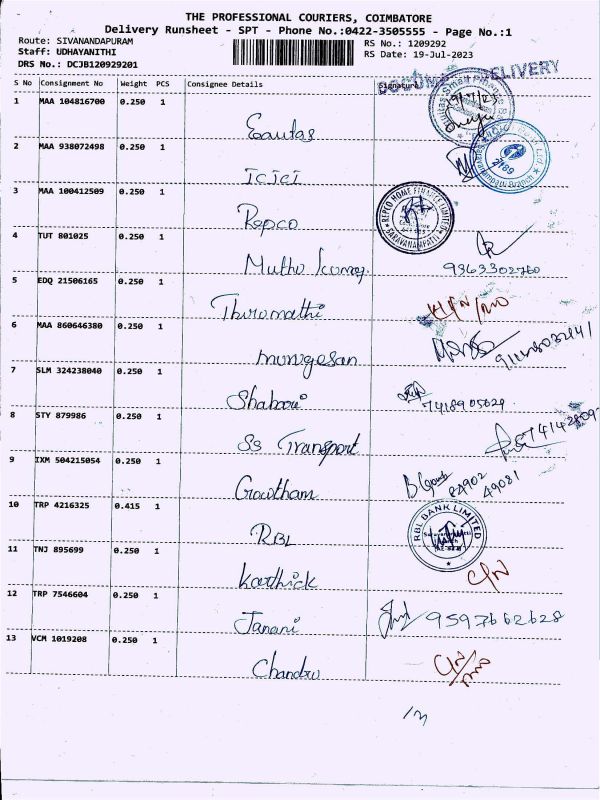 THE PROFESSIONAL COURIERS, COIMBATORE
Delivery Runsheet - SPT - Phone No.:0422-3505555 - Page No.:1
Route: SIVANANDAPURAM RS No.: 1209292
Staff: UDHAYANITHI RS Date: 19-Jul-2023
DRS No.: DCJB120929201
DELIVERY
S No Consignment No Weight PCS Consignee Details Signature
1 MAA 104816700 0.250 1
Equitas
2 MAA 938072498 0.250 1
ICICI
3 MAA 100412509 0.250 1
Repco REPCO HOME FINANCE LIMITED
4 TUT 801025 0.250 1
Muthu Kumar 9363302760
5 EDQ 21506165 0.250 1
Thirumathi
6 MAA 860646380 0.250 1
murugesan
7 SLM 324238040 0.250 1
Shabari 7418905629
8 STY 879986 0.250 1
SS Transport
9 IXM 504215054 0.250 1
Gowtham 84902 49081
10 TRP 4216325 0.415 1
RBL RBL BANK LIMITED
11 TNJ 895699 0.250 1
Karthick C/N
12 TRP 7546604 0.250 1
Janani 9597662628
13 VCM 1019208 0.250 1
Chandru C/N
/13